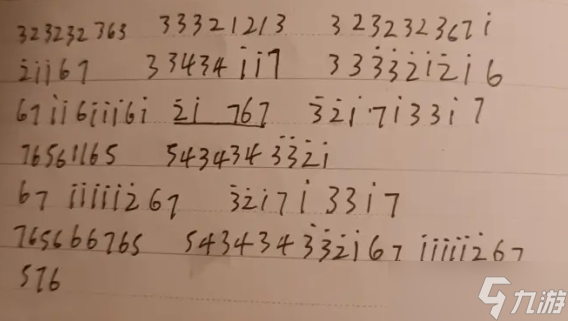 323232 363 33321213 323232367i̇
2̇i̇i̇67 33434i̇i̇7 333̇3̇2̇i̇2̇i̇6
67i̇i̇6i̇i̇i̇6i̇ 2̇i̇ 767 3̇2̇i̇7i̇33i̇7
76561165 5434343̇3̇2̇i̇
67 i̇i̇i̇i̇i̇2̇67 3̇2̇i̇7i̇33i̇7
765666765 5434343̇3̇2̇i̇67 i̇i̇i̇i̇i̇2̇67
576
九游